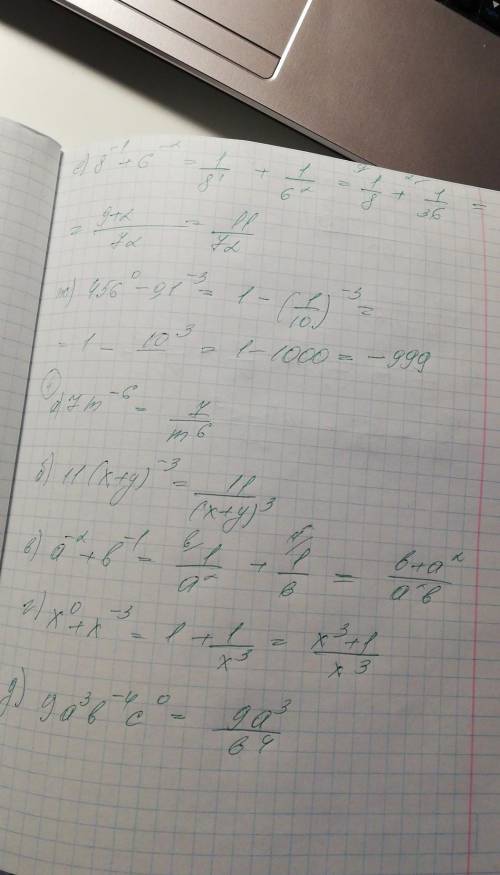 е) 8⁻¹ + 6⁻² = 1/8¹ + 1/6² = 1/8 + 1/36 =
= 9+2/72 = 11/72
ж) 456⁰ - 0,1⁻³ = 1 - (1/10)⁻³ =
= 1 - 10³ = 1 - 1000 = -999
а) 7m⁻⁶ = 7/m⁶
б) 11(x+y)⁻³ = 11/(x+y)³
в) a⁻² + b⁻¹ = 1/a² + 1/b = b+a²/a²b
г) x⁰ + x⁻³ = 1 + 1/x³ = x³+1/x³
д) 9a³b⁻⁴c⁰ = 9a³/b⁴